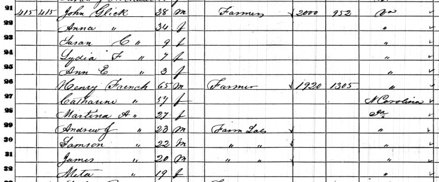 91 415 415 John Glick 38 m Farmer 2000 952 Va
92 Anna " 34 f "
93 Susan C " 9 f "
94 Lydia F " 7 f "
95 Ann E " 3 f "
96 Henry French 65 m Farmer 1920 1305 "
97 Catharine " 57 f N Carolina
98 Martina A " 27 f Va
99 Andrew J " 23 m Farm Lab "
30 Samson " 22 m " " "
31 James " 20 m " " "
Meta " 19 f "